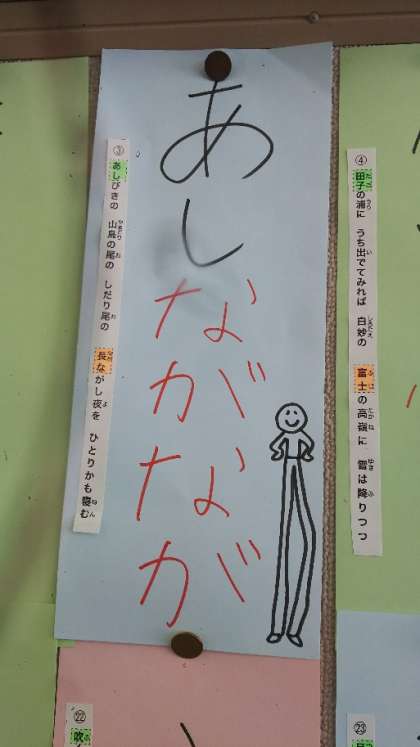 ④ 田子の浦に うち出でてみれば 白妙の 富士の高嶺に 雪は降りつつ
あしながなが
③ あしびきの 山鳥の尾の しだり尾の 長ながし夜を ひとりかも寝む
㉓
㉒ 吹